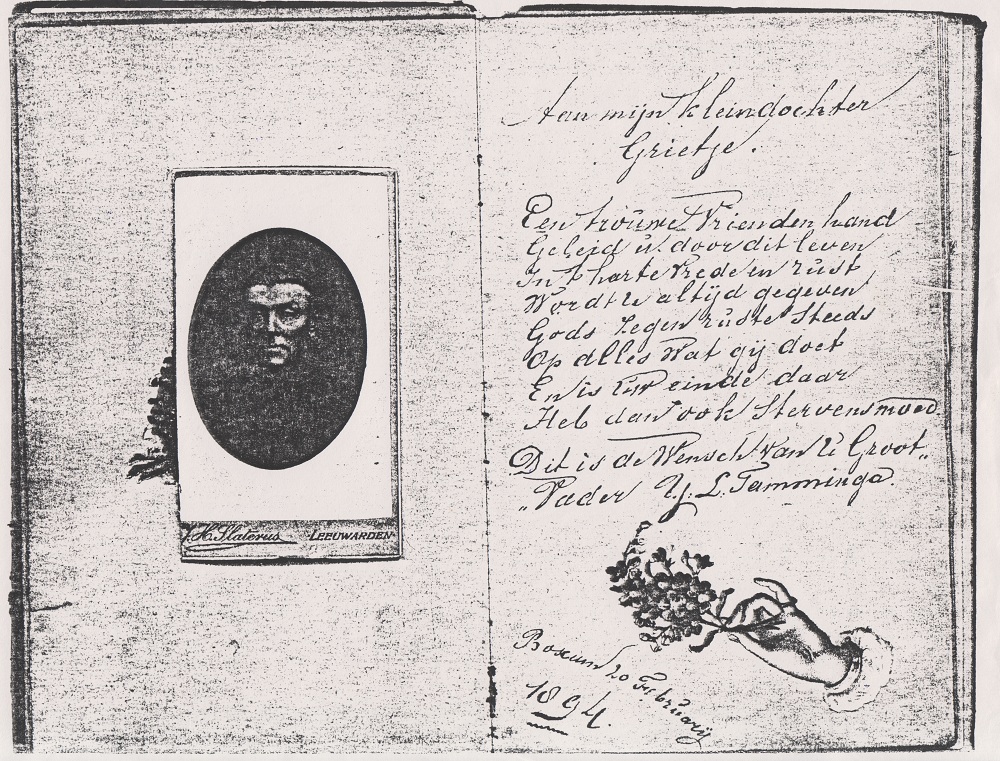 J. H. Slaterus LEEUWARDEN
Aan mijn Kleindochter
Grietje.
Een trouwe Vriendenhand
Geleid u door dit leven
In 't harte vrede en rust
Wordt U altijd gegeven
Gods zegen ruste steeds
Op alles wat gij doet
En is Uw einde daar
Heb dan ook Stervensmoed
Dit is de Wensch van U Groot„
„Vader Y. L. Tamminga.
Boxum 20 Februarij
1894.